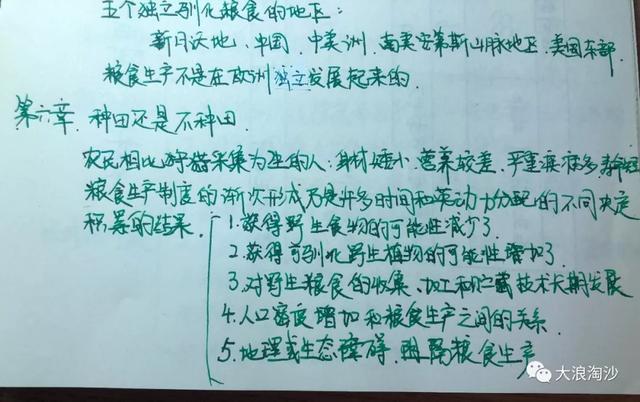 五个独立驯化粮食的地区:
新月沃地、中国、中美洲、南美安第斯山脉地区、美国东部.
粮食生产不是在欧洲独立发展起来的.
第六章. 种田还是不种田.
农民相比狩猎采集为生的人:身材矮小、营养较差、严重疾病多,寿命短
粮食生产制度的渐次形成乃是许多时间和劳动力分配的不同决定
积累的结果.
1.获得野生食物的可能性减少了.
2.获得可驯化野生植物的可能性增加了.
3.对野生粮食的收集、加工和贮藏技术长期发展
4.人口密度增加和粮食生产之间的关系.
5.地理或生态障碍.阻隔粮食生产
大浪淘沙